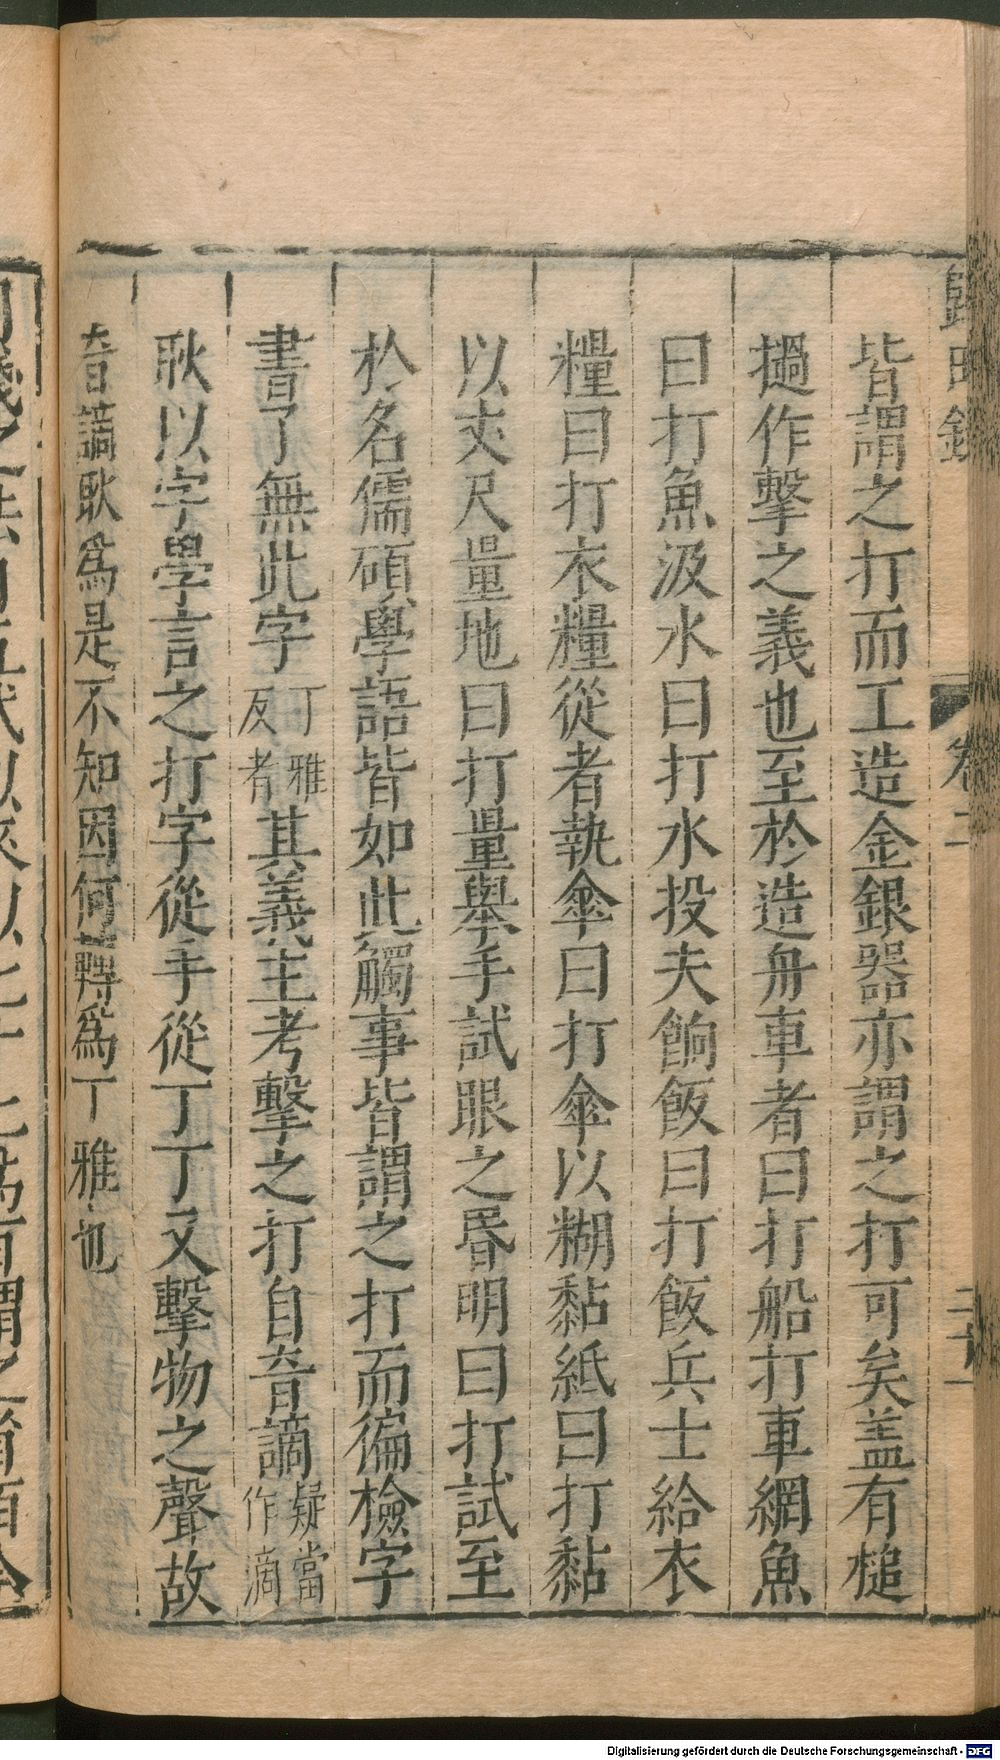 歸田錄 卷二 二十一
皆謂之打而工造金銀器亦謂之打可矣盖有槌
撾作擊之義也至於造舟車者曰打船打車網魚
曰打魚汲水曰打水投夫餉飯曰打飯兵士給衣
糧曰打衣糧從者執傘曰打傘以糊黏紙曰打黏
以丈尺量地曰打量舉手試眼之昏明曰打試至
於名儒碩學語皆如此觸事皆謂之打而徧檢字
書了無此字丁雅反者其義主考擊之打自音謫疑當作滴
耿以字學言之打字從手從丁丁又擊物之聲故
音謫耿為是不知因何轉為丁雅也
Digitalisierung gefördert durch die Deutsche Forschungsgemeinschaft - DFG